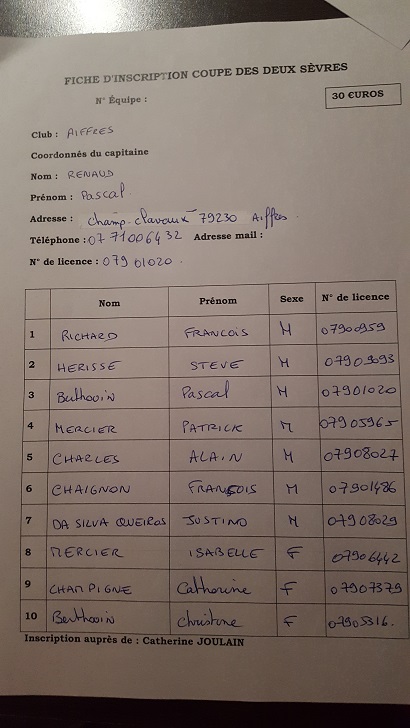 FICHE D'INSCRIPTION COUPE DES DEUX SÈVRES
N° Équipe :
30 €UROS
Club : AIFFRES
Coordonnés du capitaine
Nom : RENAUD
Prénom : Pascal
Adresse : champ-clavaux 79230 Aiffres
Téléphone : 07 71006432 Adresse mail :
N° de licence : 079 01020.
Nom Prénom Sexe N° de licence
1 RICHARD FRANCOIS M 07900959
2 HERISSE STEVE M
3 Pascal M 07901020
4 MERCIER PATRICK M 07905965
5 CHARLES ALAIN M 07908027
6 CHAIGNON FRANÇOIS M 07901486
7 DA SILVA QUEIROS JUSTINO M 07908029
8 MERCIER ISABELLE F 07906442
9 CHAMPIGNE Catherine F 07907379
10 Berthovin Christine F 07905316.
Inscription auprès de : Catherine JOULAIN